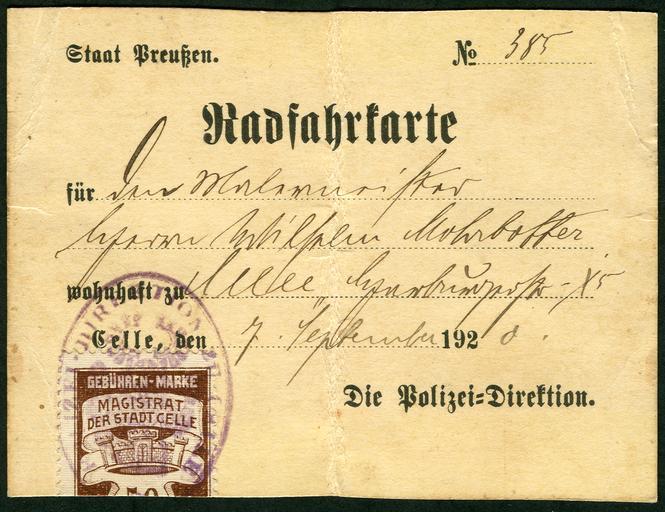 Staat Preußen.
No 385
Radfahrkarte
für den Malermeister
Herrn Wilhelm Mohrbotter
wohnhaft zu Celle,
Celle, den 7. September 192
Die Polizei=Direktion.
GEBÜHREN-MARKE
MAGISTRAT
DER STADT CELLE
50